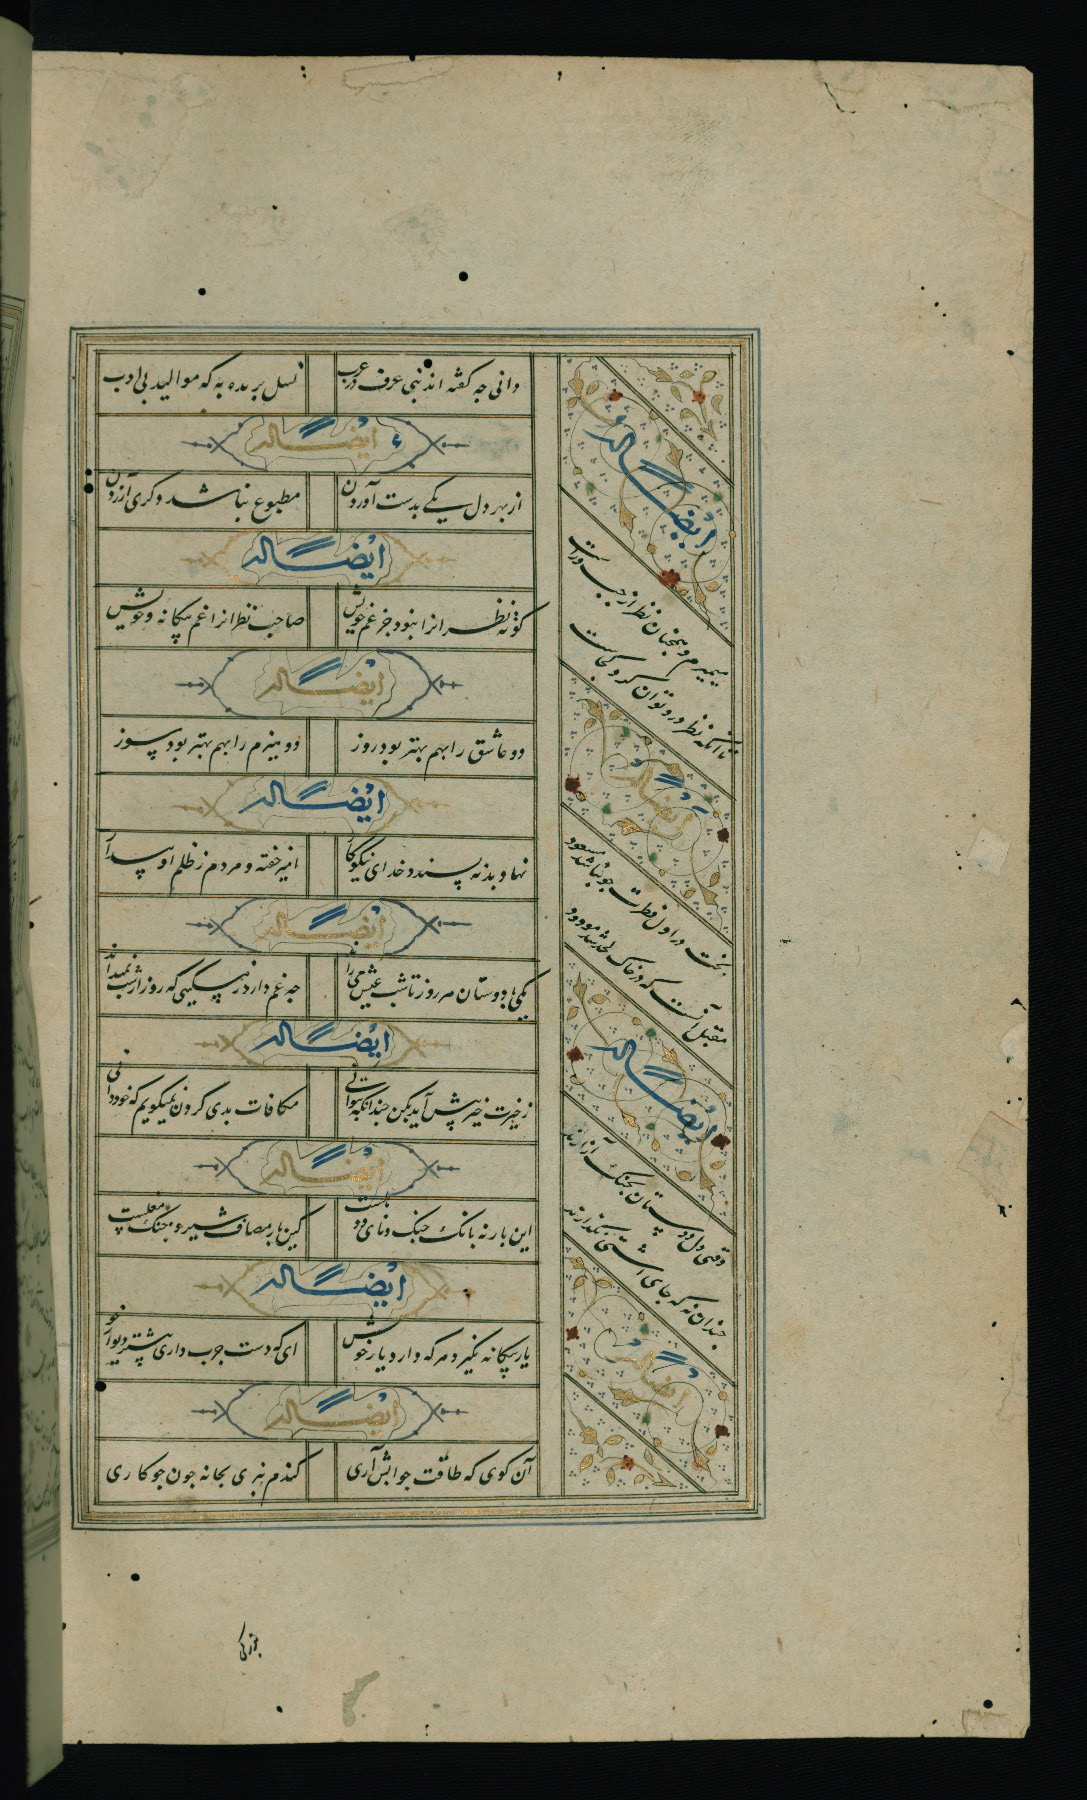 دانی چه گفته‌اند نبی عوف در عرب نسل بریده به که موالید بی ادب
ایضاً له
از بهر دل یکی بدست آوردن مطبوع نباشد دگری آزردن
ایضاً له
کوته نظرانرا نبود جز غم خویش صاحب نظرانرا غم بیکانه و خویش
ایضاً له
دو عاشق را بهم بهتر بود روز دو هیزم را بهم بهتر بود سوز
ایضاً له
نهاد بد نه پسندد خدای نیکوکار امیر خفته و مردم ز ظلم او بیدار
ایضاً له
یکی با دوستان هر روز تا شب عیش می راند چه غم دارد ز مسکینی که روز از شب نمیداند
ایضاً له
ز خیرت خیر پیش آید بکن چندانکه بتوانی مکافات بدی کردن نمیکویم که خود دانی
ایضاً له
این بار نه بانک چنک و نای و دو کین بار مصاف شیر و جنک
ایضاً له
یار بیکانه نکیرد هر که دارد یار خویش ای که دست چرب داری پیشتر دیوار خویش
ایضاً له
آن کوی که طاقت جوابش آری کندم نبری بخانه چون جو کاری
ایضاً له
میمیرم و همچنان نظر از چپ و راست
تا آنکه نظر درو توان کرد کجاست
ایضاً له
بخت در اول فطرت چو نباشد مسعود
مقبل آنست که در خاک لحد شد موجود
ایضاً له
وقتی دل دوستان بجنک آزارند
چندان نه که جای آشتی نکذارند
ایضاً له